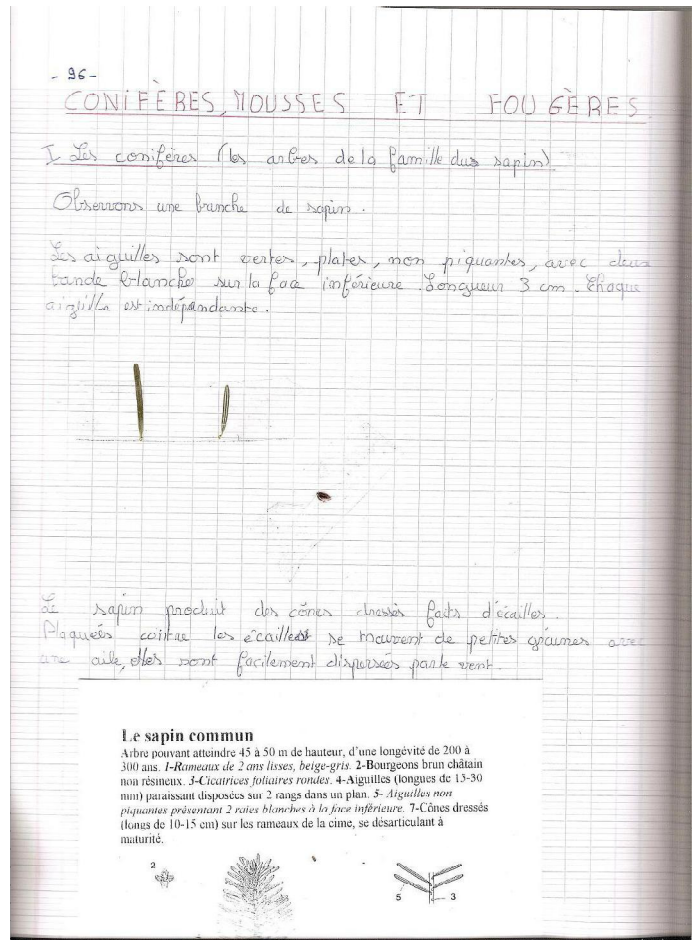 - 96 -
CONIFÈRES, MOUSSES ET FOUGÈRES
I Les conifères (les arbres de la famille dus sapin)
Observons une branche de sapin.
Les aiguilles sont vertes, plates, non piquantes, avec deux
bande blanche sur la face inférieure. Longueur 3 cm. Chaque
aiguille est indépandante.
Le sapin produit des cônes dressés faits d'écailles.
Plaquées contre les écailles se trouvent de petites graines avec
une aile, elles sont facilement dispersées par le vent.
Le sapin commun
Arbre pouvant atteindre 45 à 50 m de hauteur, d'une longévité de 200 à
300 ans. 1-Rameaux de 2 ans lisses, beige-gris. 2-Bourgeons brun châtain
non résineux. 3-Cicatrices foliaires rondes. 4-Aiguilles (longues de 15-30
mm) paraissant disposées sur 2 rangs dans un plan. 5- Aiguilles non
piquantes présentant 2 raies blanches à la face inférieure. 7-Cônes dressés
(longs de 10-15 cm) sur les rameaux de la cime, se désarticulant à
maturité.
2
5
3